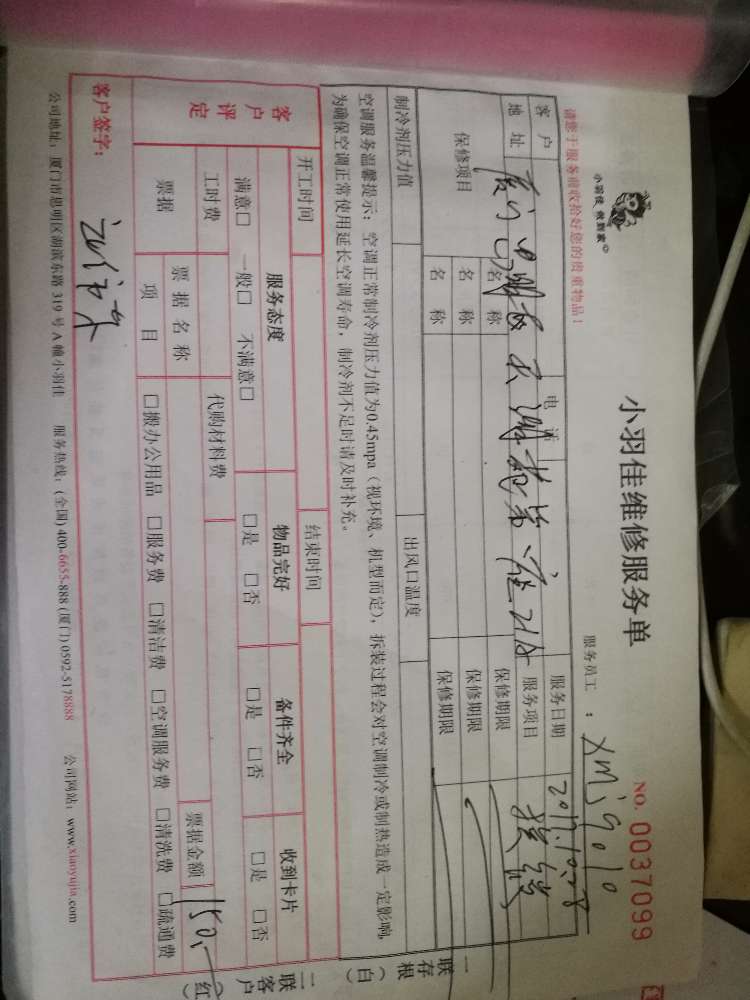 小羽佳 做到家
请您于服务前收拾好您的贵重物品！
小羽佳维修服务单
NO. 0037099
服务员工 ：
客户 电话 服务日期 2017.10.28
地址 服务项目
保修项目 名称 保修期限
名称 保修期限
名称 保修期限
制冷剂压力值 出风口温度
空调服务温馨提示：空调正常制冷剂压力值为0.45mpa（视环境、机型而定），拆装过程会对空调制冷或制热造成一定影响，
为确保空调正常使用延长空调寿命，制冷剂不足时请及时补充。
开工时间 结束时间
客户评定 服务态度 物品完好 备件齐全 收到卡片
满意□ 一般□ 不满意□ □是 □否 □是 □否 □是 □否
工时费 代购材料费
票据 票据名称 票据金额 150.
项目 □搬办公用品 □服务费 □清洁费 □空调服务费 □清洗费 □疏通费
客户签字：
公司地址：厦门市思明区湖滨东路 319 号 A 幢小羽佳 服务热线：(全国) 400-6655-888 (厦门) 0592-5178888 公司网站：www.xiaoyujia.com
一联存根（白）
二联客户（红）